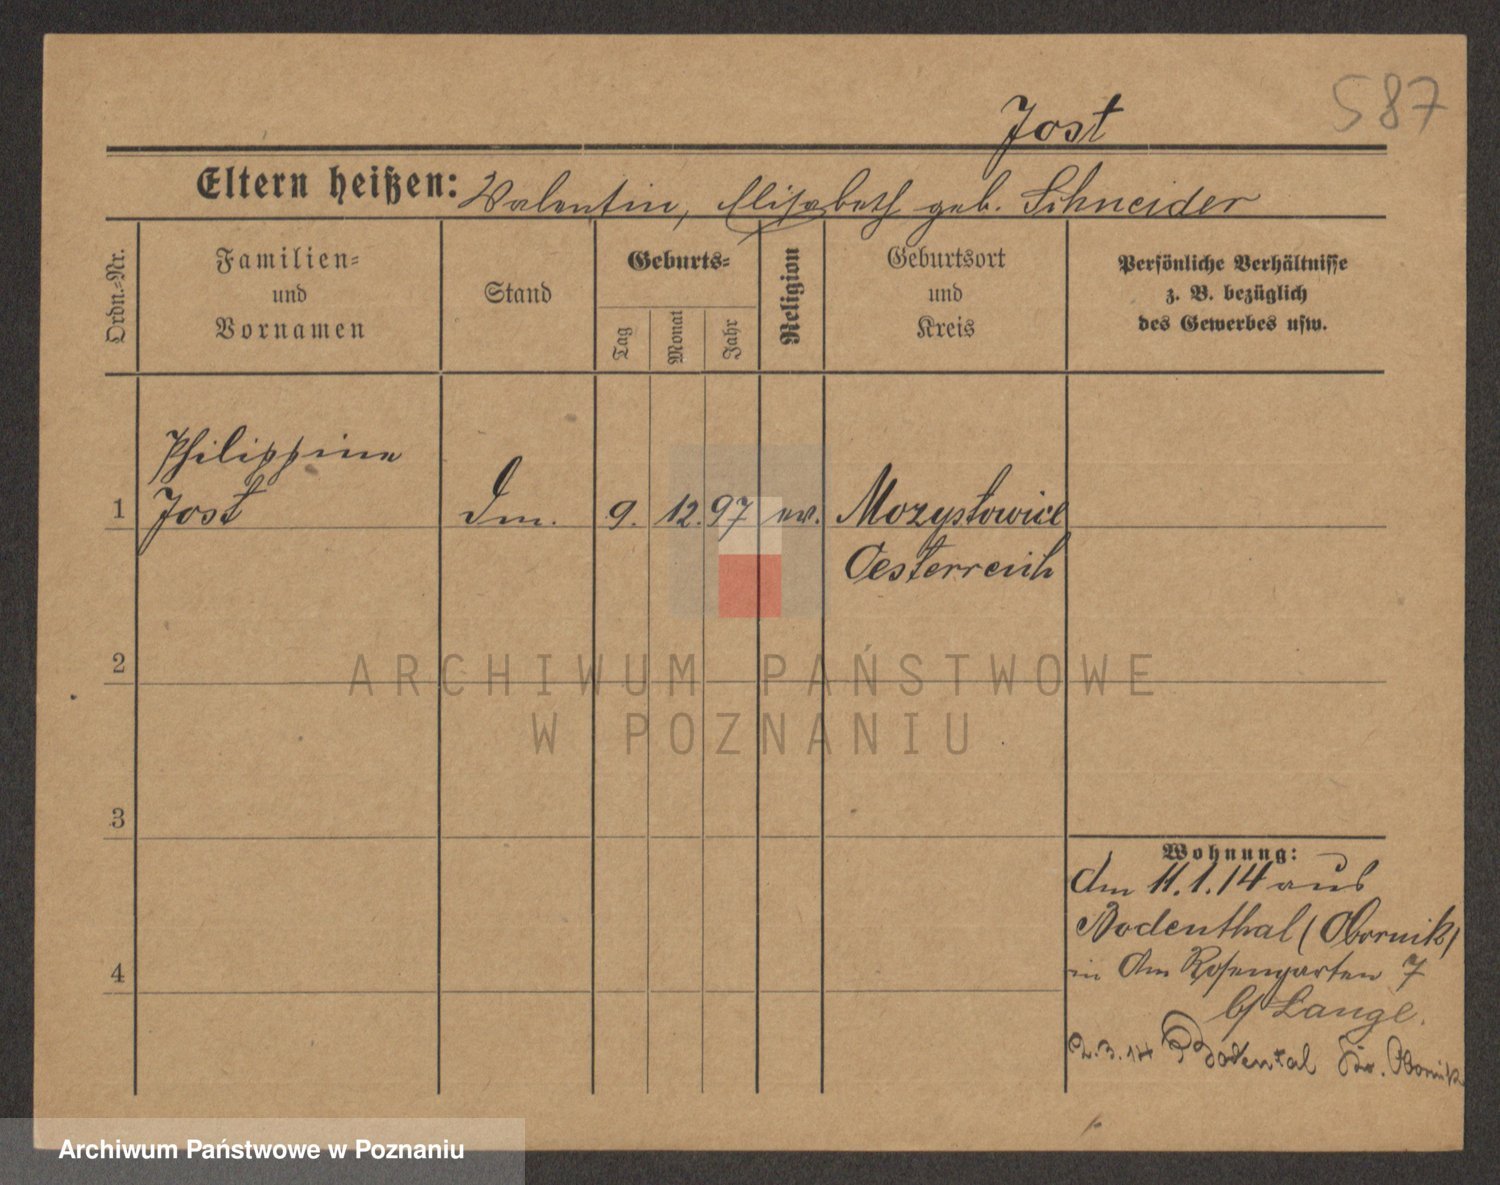 587
Jost
Eltern heißen: Valentin, Elisabeth geb. Schneider
Ordn.=Nr.
Familien=
und
Vornamen
Stand
Geburts=
Tag
Monat
Jahr
Religion
Geburtsort
und
Kreis
Persönliche Verhältnisse
z. B. bezüglich
des Gewerbes usw.
Philippine
1 Jost Dm. 9. 12. 97 ev. Mozystowice
Oesterreich
2
ARCHIWUM PAŃSTWOWE
W POZNANIU
3
Wohnung:
dm 11.1.14 aus
Bodenthal (Obornik)
4
in Am Rosengarten 7
b/ Lange.
2.3.14 Bodental Kr. Obornik
Archiwum Państwowe w Poznaniu